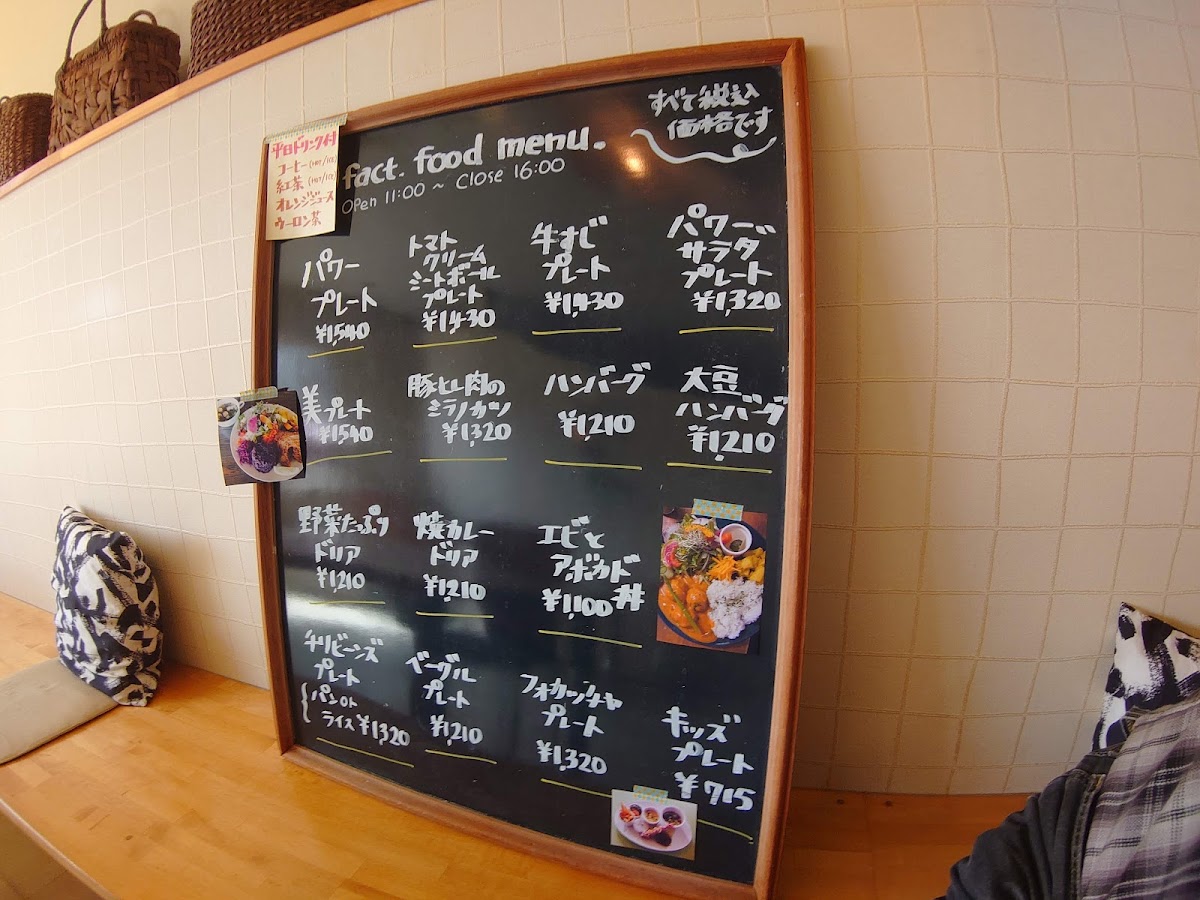 平日ドリンク付
コーヒー(HOT/ICE)
紅茶(HOT/ICE)
オレンジジュース
ウーロン茶
fact. food menu.
OPen 11:00 ~ Close 16:00
すべて税込
価格です
パワー
プレート
¥1,540
トマト
クリーム
ミートボール
プレート
¥1,430
牛すじ
プレート
¥1,430
パワー
サラダ
プレート
¥1,320
美プレート
¥1,540
豚ヒレ肉の
ミラノカツ
¥1,320
ハンバーグ
¥1,210
大豆
ハンバーグ
¥1,210
野菜たっぷり
ドリア
¥1,210
焼カレー
ドリア
¥1,210
エビと
アボカド
丼
¥1,100
チリビーンズ
プレート
パンorライス
¥1,320
ベーグル
プレート
¥1,210
フォカッチャ
プレート
¥1,320
キッズ
プレート
¥715